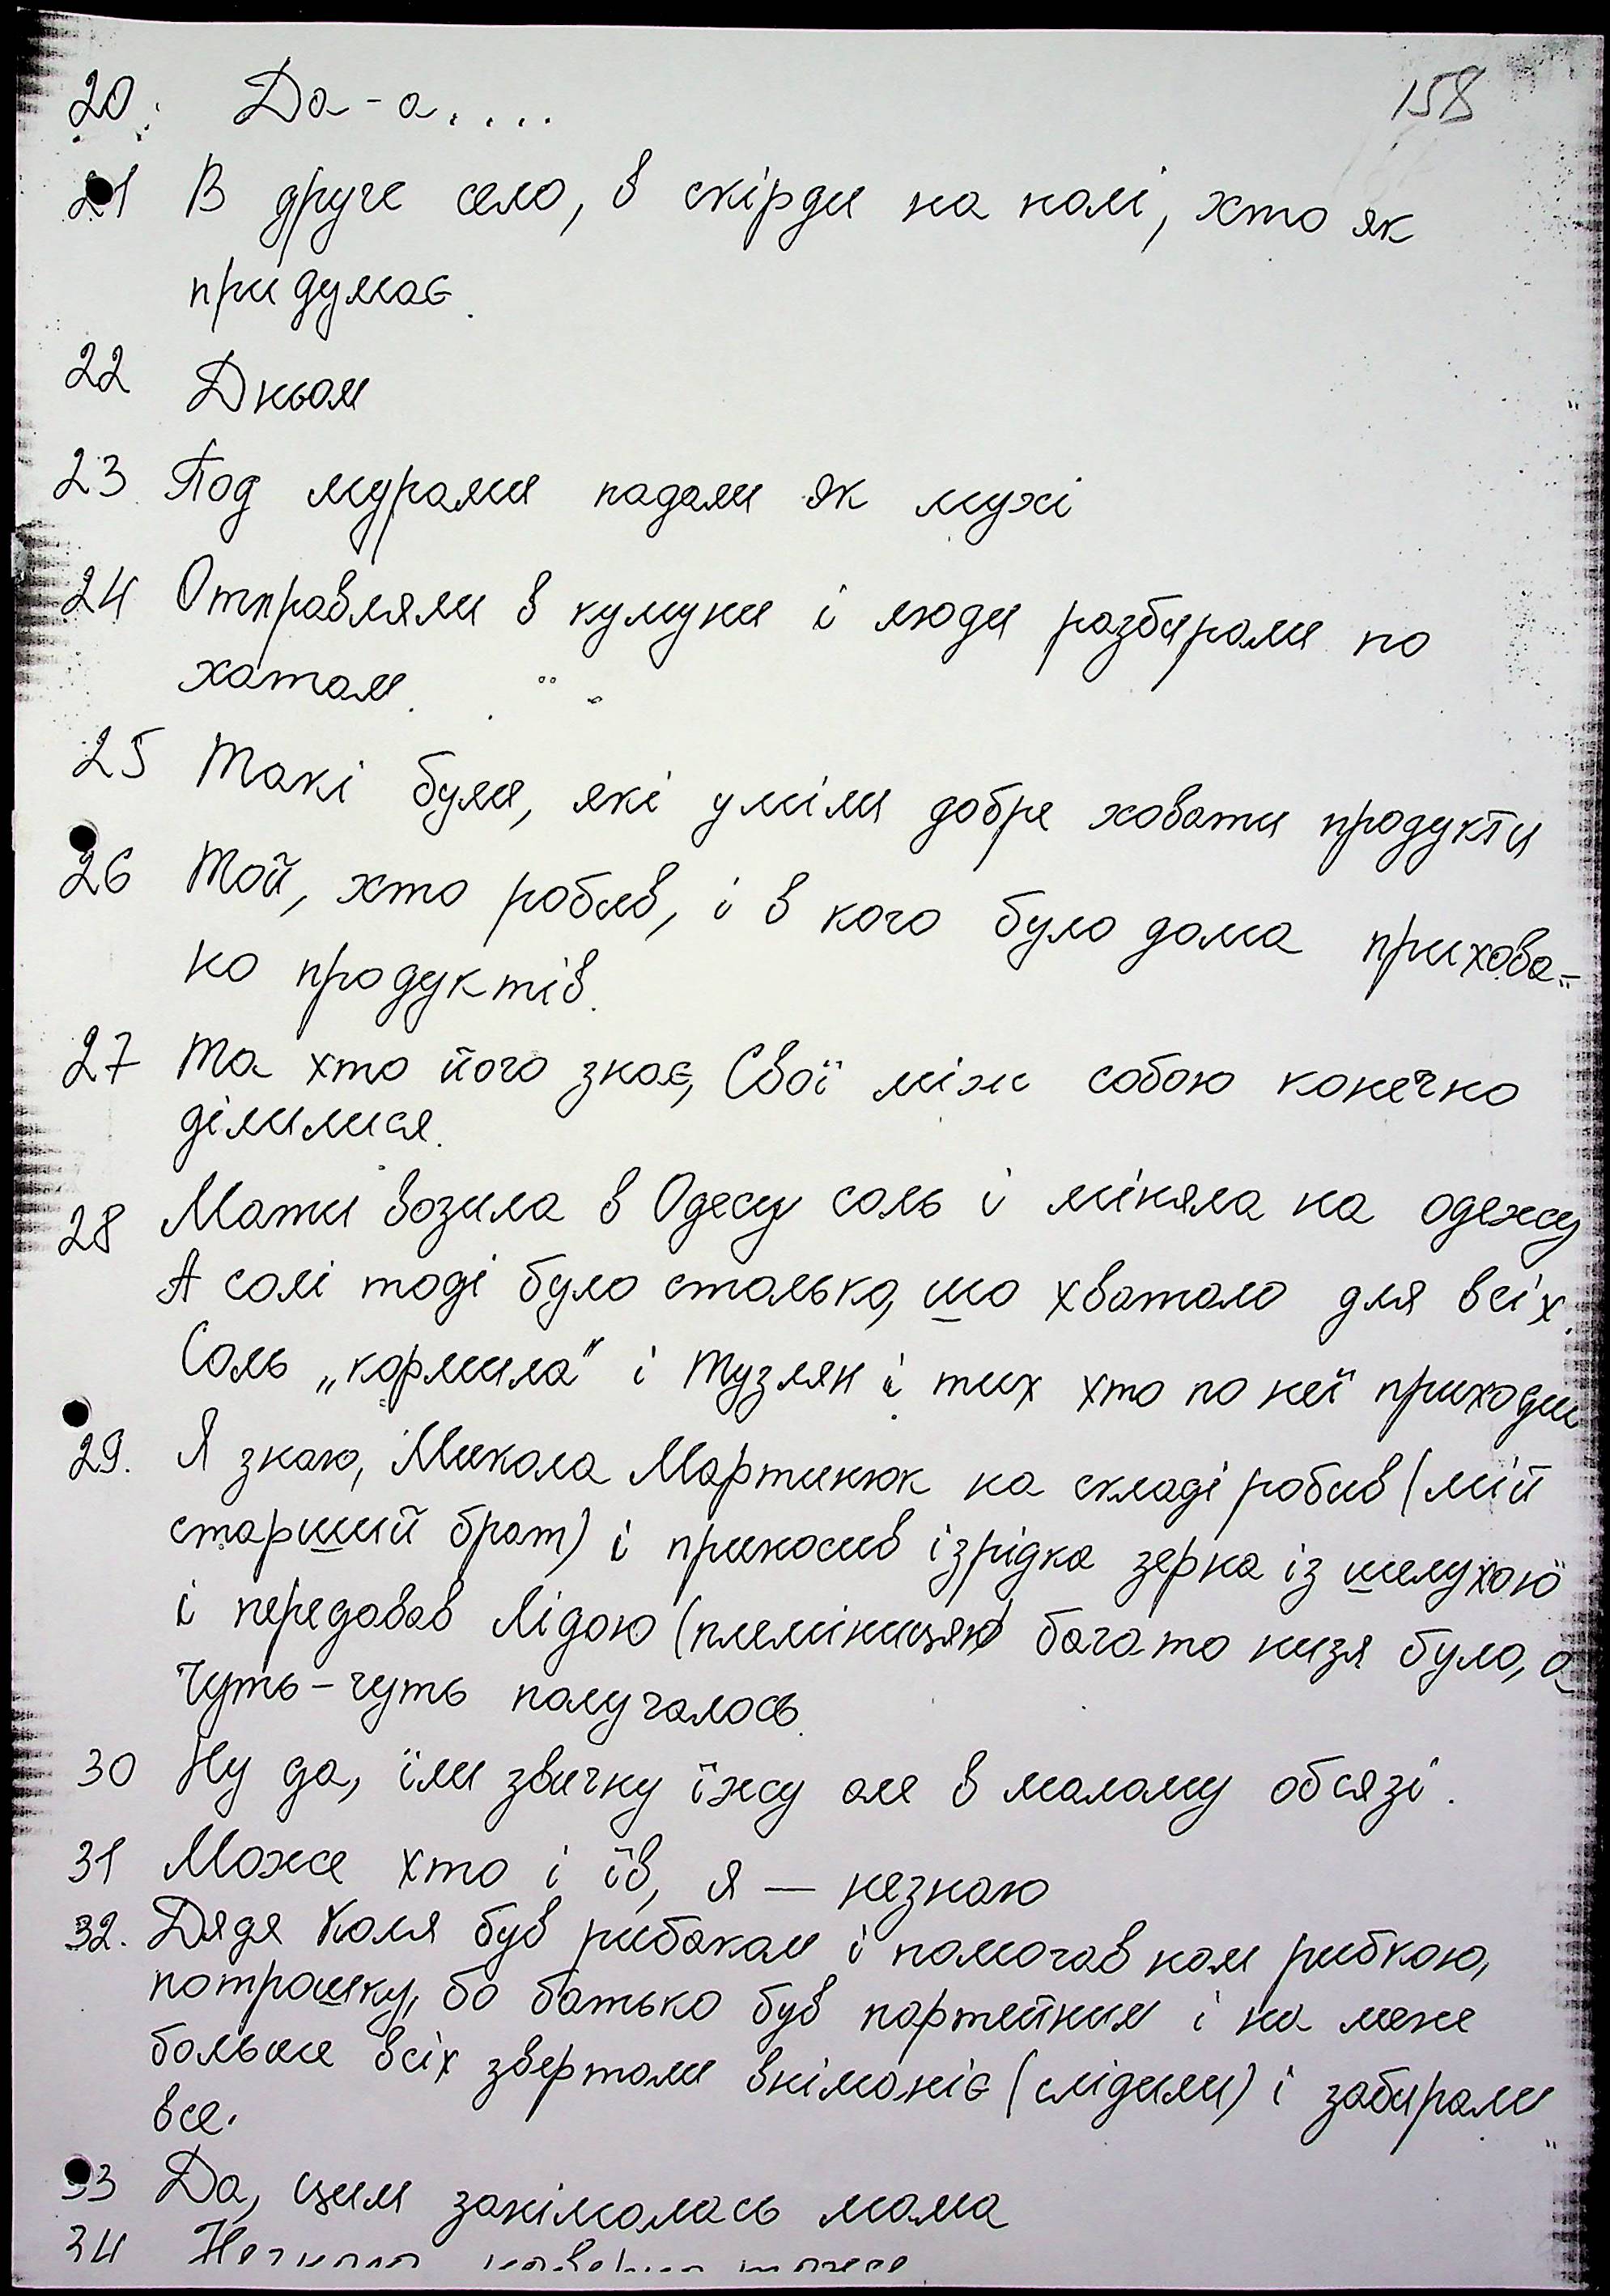 158
20. Да-а....
21 В друге село, в скірди на полі, хто як
придумає.
22 Дньом
23 Под мурами падали як мухі
24 Отправляли в кулуки і люди разбирали по
хатам.
25 Такі були, які уміли добре ховати продукти
26 Той, хто робив, і в кого було дома прихова-
но продуктів.
27 Та хто його знає, Свої між собою конечно
ділилися.
28 Мати возила в Одесу соль і міняла на одежу
А солі тоді було столько, шо хватало для всіх.
Соль „кормила" і Тузлян і тих хто по неї приходи
29. Я знаю, Микола Мартинюк на складі робив (мій
старший брат) і приносив ізрідка зерна із шелухою
і передавав Лідою (племіницею) багато низя було, а
Чуть-чуть получалось.
30 Ну да, їли звичну їжу але в малому обсязі.
31 Може хто і їв, я — незнаю
32. Дядя Коля був рибаком і помогав нам рибкою,
потрошку, бо батько був партейним і на мене
больше всіх звертали вніманіє (слідили) і забирали
все.
33 Да, цим занімалась мама
34